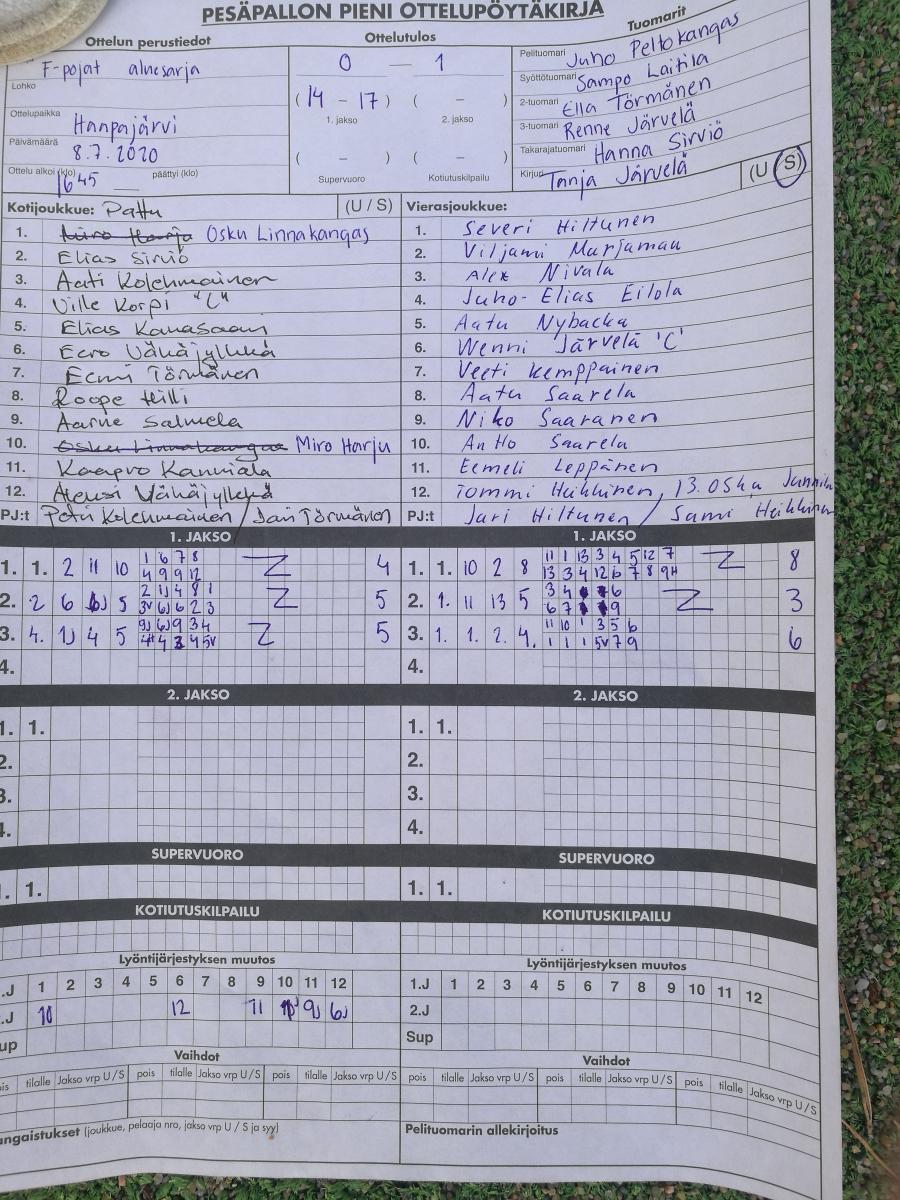 PESÄPALLON PIENI OTTELUPÖYTÄKIRJA
Ottelun perustiedot
F-pojat aluesarja
Lohko
Ottelupaikka
Haapajärvi
Päivämäärä
8.7.2020
Ottelu alkoi (klo) 1645 päättyi (klo)
Ottelutulos
0 — 1
( 14 - 17 ) ( - )
1. jakso 2. jakso
( - ) ( - )
Supervuoro Kotiutuskilpailu
Tuomarit
Pelituomari Juho Peltokangas
Syöttötuomari Sampo Laitila
2-tuomari Ella Törmänen
3-tuomari Renne Järvelä
Takarajatuomari Hanna Sirviö
Kirjuri Tanja Järvelä (U S)
Kotijoukkue: Pattu (U / S)
1. Miro Harju Osku Linnakangas
2. Elias Sirviö
3. Aati Kolehmainen
4. Ville Korpi "C"
5. Elias Kanasaari
6. Eero Vähäjylkkä
7. Eemi Törmänen
8. Roope Hilli
9. Aarne Salmela
10. Osku Linnakangas Miro Harju
11. Kaapro Kanniala
12. Aleksi Vähäjylkkä
PJ:t Petri Kolehmainen / Jari Törmänen
Vierasjoukkue:
1. Severi Hiltunen
2. Viljami Marjamaa
3. Alex Nivala
4. Juho-Elias Eilola
5. Aatu Nybacka
6. Wenni Järvelä 'C'
7. Veeti Kemppainen
8. Aatu Saarela
9. Niko Saaranen
10. Antto Saarela
11. Eemeli Leppänen
12. Tommi Heikkinen, 13. Oska
PJ:t Jari Hiltunen / Sami Heikkinen
1. JAKSO
1. 1. 2 11 10 1 6 7 8 4
4 9 9 12
2. 2 6 5 5
3. 4. 4 5 5
4.
1. JAKSO
1. 1. 10 2 8 11 1 13 3 4 5 12 7 8
13 3 4 12 6 7 8
2. 1. 11 13 5 3 4 6 3
6 7 9
3. 1. 1. 2. 4. 11 10 1 3 5 6 6
1 1 1 5v 7 9
4.
2. JAKSO
1. 1.
2.
3.
4.
2. JAKSO
1. 1.
2.
3.
4.
SUPERVUORO
1. 1.
SUPERVUORO
1. 1.
KOTIUTUSKILPAILU
KOTIUTUSKILPAILU
Lyöntijärjestyksen muutos
.J 1 2 3 4 5 6 7 8 9 10 11 12
.J 10 12 11
up
Lyöntijärjestyksen muutos
1.J 1 2 3 4 5 6 7 8 9 10 11 12
2.J
Sup
Vaihdot
is tilalle Jakso vrp U / S pois tilalle Jakso vrp U / S pois tilalle Jakso vrp U / S
Vaihdot
pois tilalle Jakso vrp U / S pois tilalle Jakso vrp U / S pois tilalle Jakso vrp U / S
angaistukset (joukkue, pelaaja nro, jakso vrp U / S ja syy)
Pelituomarin allekirjoitus